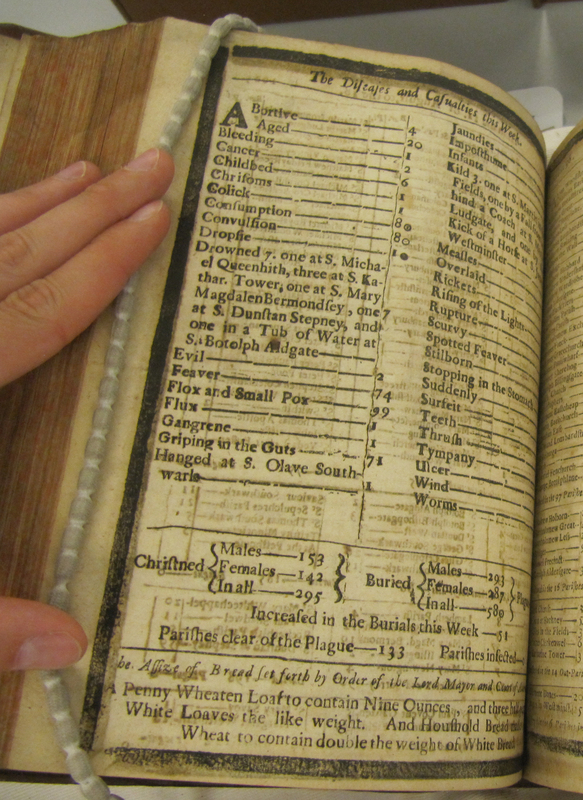 The Diseases and Casualties this Week.
ABortive 4
Aged 20
Bleeding 1
Cancer 2
Childbed 6
Chrisoms 1
Colick 1
Consumption 80
Convulsion 80
Dropsie 10
Drowned 7. one at S. Micha-
el Queenhith, three at S. Ka-
thar. Tower, one at S. Mary
Magdalen Bermondsey, one 7
at S. Dunstan Stepney, and
one in a Tub of Water at
S. Botolph Aldgate
Evil 2
Feaver 74
Flox and Small Pox 99
Flux 1
Gangrene 1
Griping in the Guts 71
Hanged at S. Olave South-
wark 1
Jaundies
Imposthume
Infants
Kild 3. one at S.
Fields, one by a
hind a Coach at S.
Ludgate, and one
Kick of a Horse at S.
Westminster
Measles
Overlaid
Rickets
Rising of the Lights
Rupture
Scurvy
Spotted Feaver
Stilborn
Stopping in the Stomach
Suddenly
Surfeit
Teeth
Thrush
Tympany
Ulcer
Wind
Worms
Christned Males 153
Females 142
In all 295
Buried Males 293
Females 287
In all 580
Increased in the Burials this Week 51
Parishes clear of the Plague 133 Parishes infected
The Assize of Bread set forth by Order of the Lord Mayor and Court of
A Penny Wheaten Loaf to contain Nine Ounces, and three
White Loaves the like weight. And Houshold Bread
Wheat to contain double the weight of White Bread